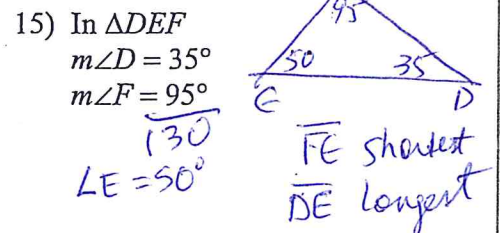 15) In ΔDEF
m∠D = 35°
m∠F = 95°
130
∠E = 50°
95
50
35
E
D
FE shortest
DE longest